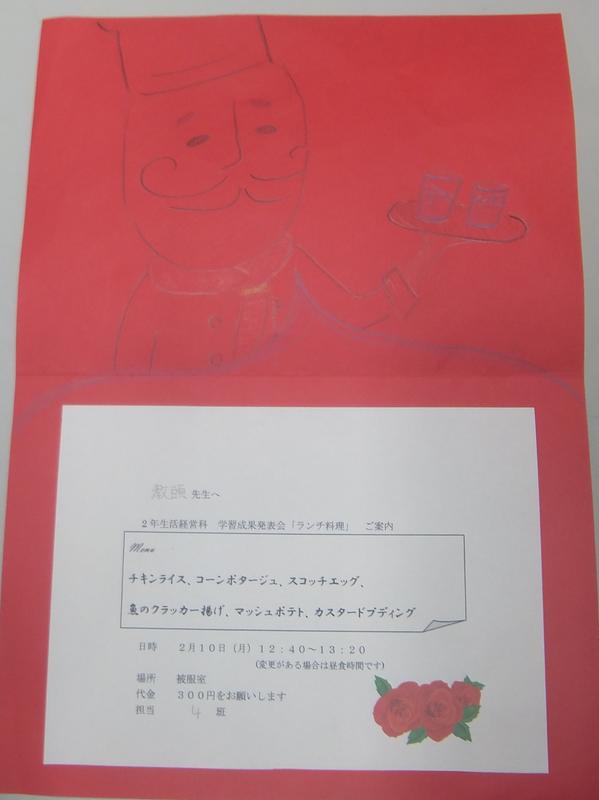 教頭先生へ
２年生活経営科　学習成果発表会「ランチ料理」　ご案内
Menu
チキンライス、コーンポタージュ、スコッチエッグ、
魚のクラッカー揚げ、マッシュポテト、カスタードプディング
日時　２月１０日（月）１２：４０～１３：２０
（変更がある場合は昼食時間です）
場所　被服室
代金　３００円をお願いします
担当　4　班